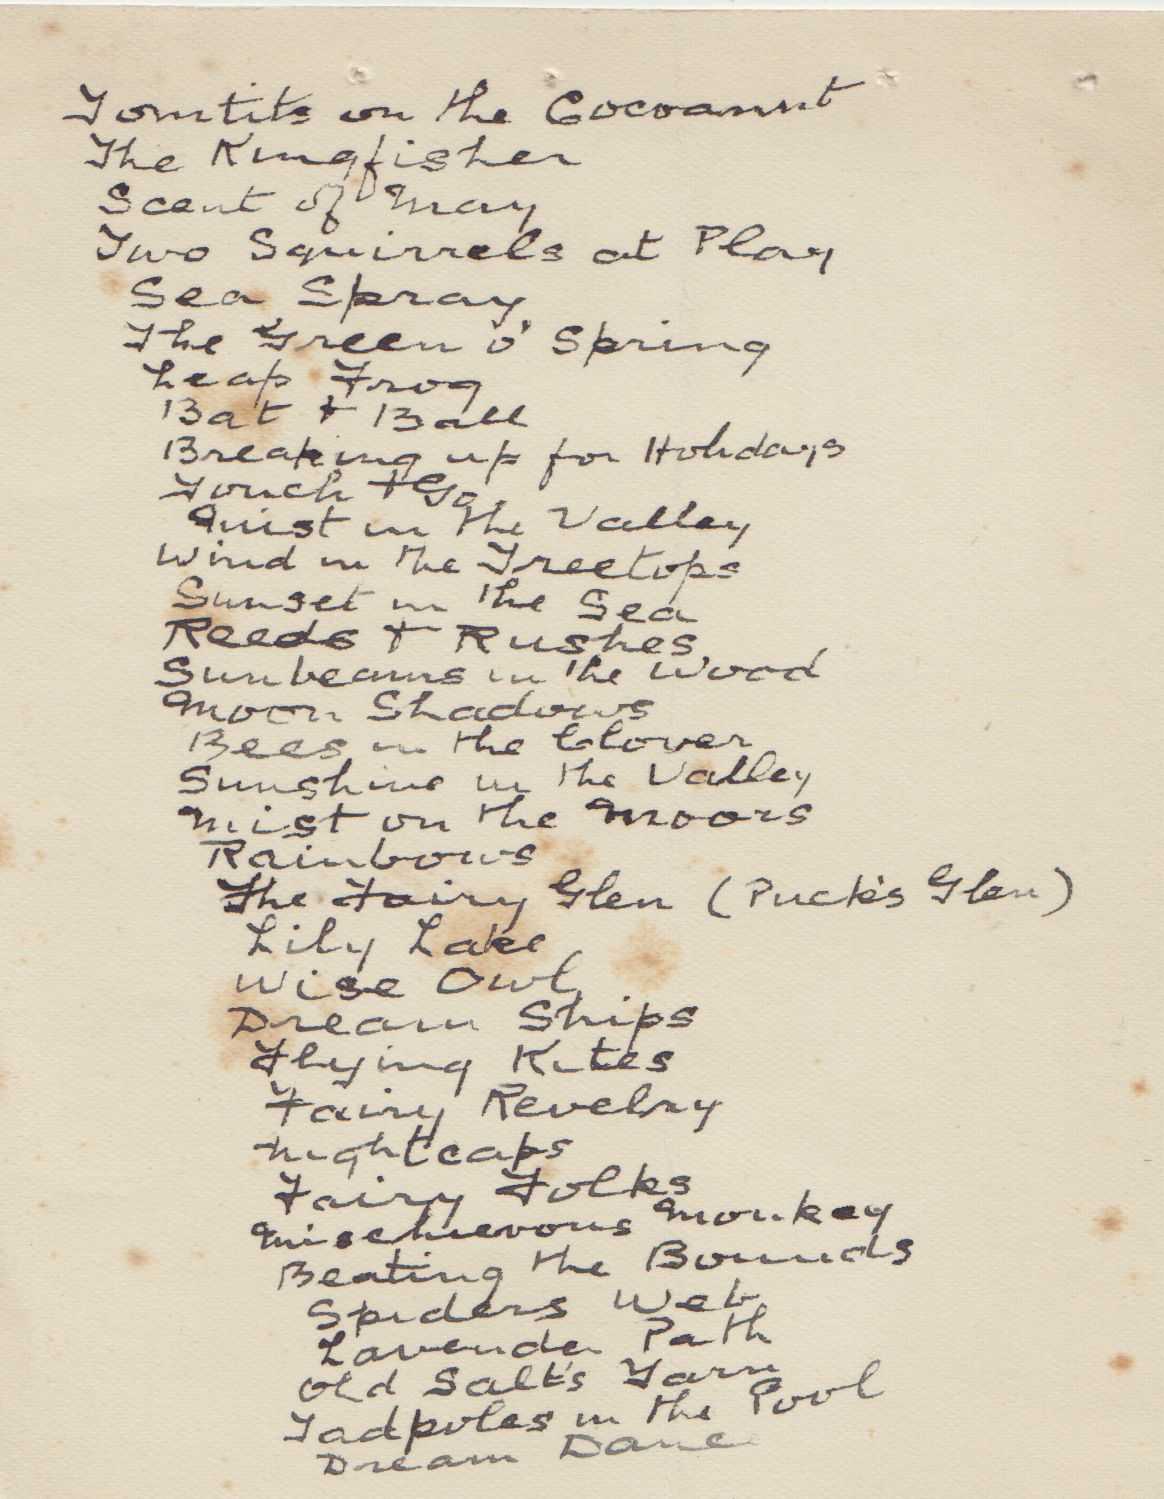 Tomtits on the Cocoanut
The Kingfisher
Scent of May
Two Squirrels at Play
Sea Spray
The Green o' Spring
Leap Frog
Bat + Ball
Breaking up for Holidays
Touch + Go
Mist in the Valley
Wind in the Treetops
Sunset in the Sea
Reeds + Rushes
Sunbeams in the Wood
Moon Shadows
Bees in the Clover
Sunshine in the Valley
Mist on the Moors
Rainbows
The Fairy Glen (Puck's Glen)
Lily Lake
Wise Owl
Dream Ships
Flying Kites
Fairy Revelry
Nightcaps
Fairy Folks
Mischievous Monkey
Beating the Bounds
Spiders Web
Lavender Path
Old Salt's Yarn
Tadpoles in the Pool
Dream Dance